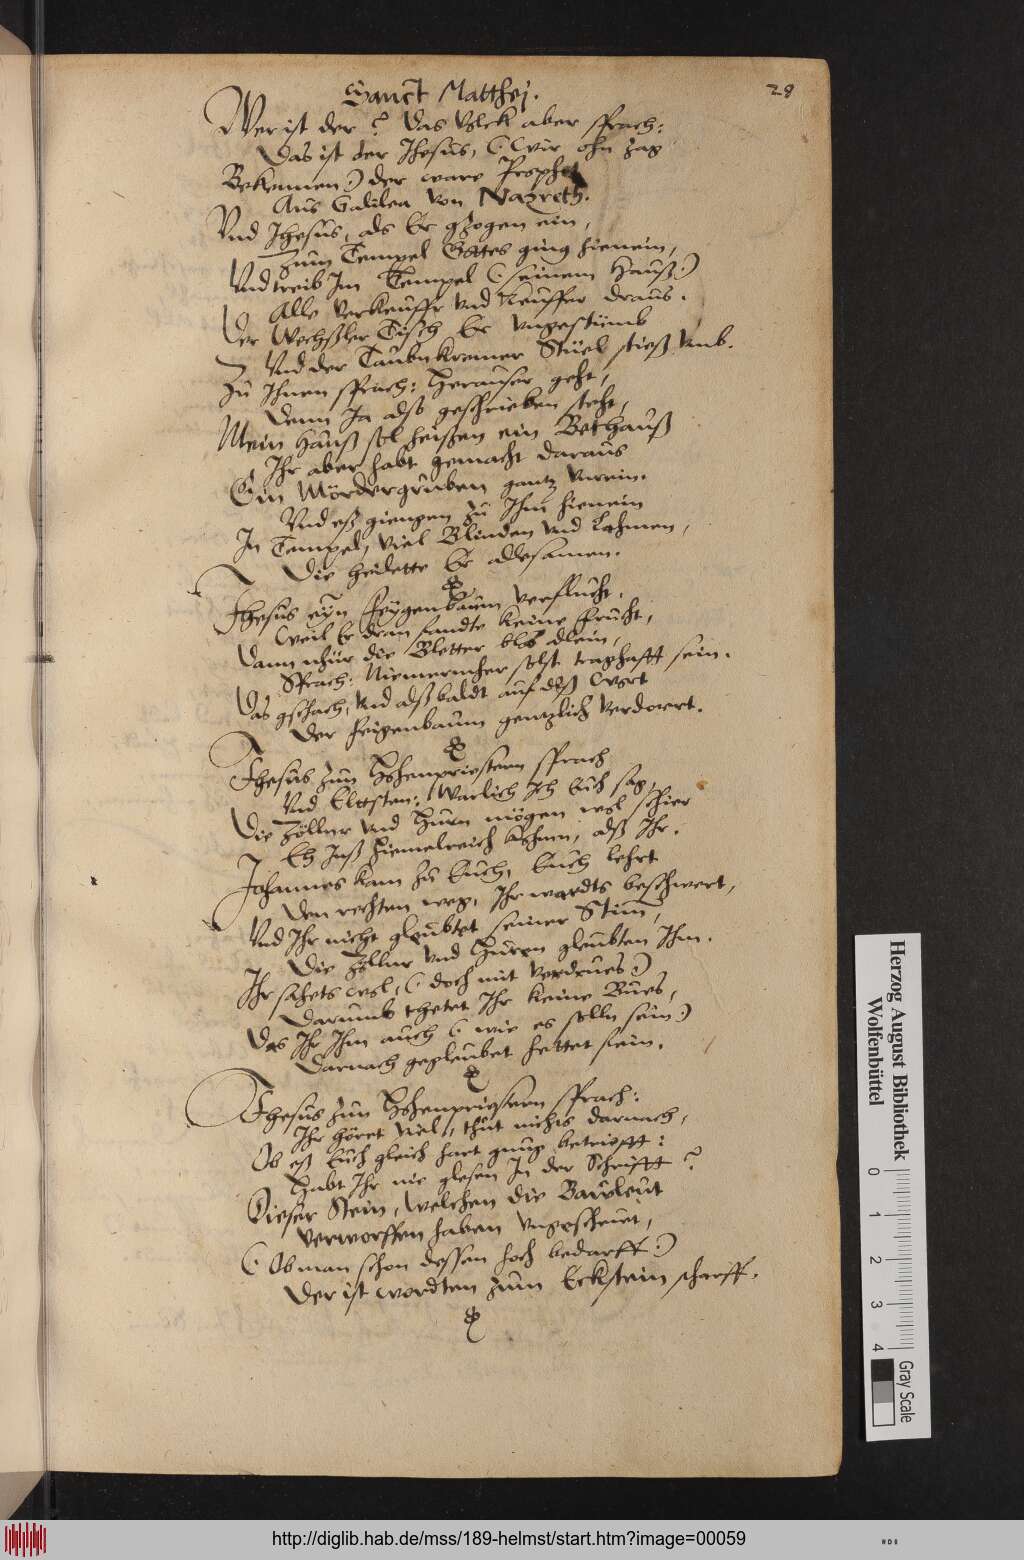 28
Sanct Matthej.
Wer ist der? das Volck aber sprach:
Das ist der Jhesus, (: wir ohn zag
Bekennen :) der ware Prophet
Aus Galilea von Nazreth.
Vnd Jhesus, als Er gzogen ein,
Zum Tempel Gottes ging hienein,
Vnd treib Im Tempel (: seinem Hauß :)
Alle Verkeuffr vnd Keuffer draus.
Der Wechßler Tisch Er vngestümb
Vnd der Taubnkremer Stüel stieß vmb.
Zu Ihnen sprach: Herausser geht,
Denn Ja alß geschrieben steht,
Mein Hauß sol heißen ein Bethauß
Ihr aber habt gemacht daraus
Ein Mördergruben gantz vnrein.
Vnd eß giengen zu Ihm hienein
In Tempel, viel Blinden vnd Lahmen,
Die heilette Er allesamen.
Jhesus eyn Feygenbaum verflucht,
Weil Er dran fandte keine frucht,
Dann nhür die Bletter blos allein,
Sprach: Niemermher solst traghafft sein.
Das gschach, vnd alß baldt auf diß Wort
Der Feigenbaum gentzlich verdorrt.
Jhesus zun Hohenpriestern sprach
Vnd Elttsten: Warlich Ich Euch sag,
Die Zöllnr vnd Hurn mögen wol schier
Eh Inß Himelreich kohmn, alß Ihr.
Johannes kam zu Euch, Euch lehrt
Den rechten weg, Ihr wardts beschwert,
Vnd Ihr nicht gleubtet seiner Stim,
Die Zöllnr vnd Huren gleubten Ihm.
Ihr sahets wol, (: doch mit verdrues :)
Darumb thetet Ihr keine Bues,
Das Ihr Ihm auch (: wie es solln sein :)
Darnach gegleubet hettet fein.
Jhesus zun Hohenpriestern sprach:
Ihr höret viel, thut nichts darnach,
Ob eß Euch gleich hart gnug betriefft:
Habt Ihr nie glesen In der Schrifft?
Dieser Stein, welchen die Bauleut
Verworffen haben vngescheut,
(: Ob man schon dessen hoch bedarff :)
Der ist wordten zum Eckstein scharff.
Herzog August Bibliothek
Wolfenbüttel
0 1 2 3 4
Gray Scale
http://diglib.hab.de/mss/189-helmst/start.htm?image=00059